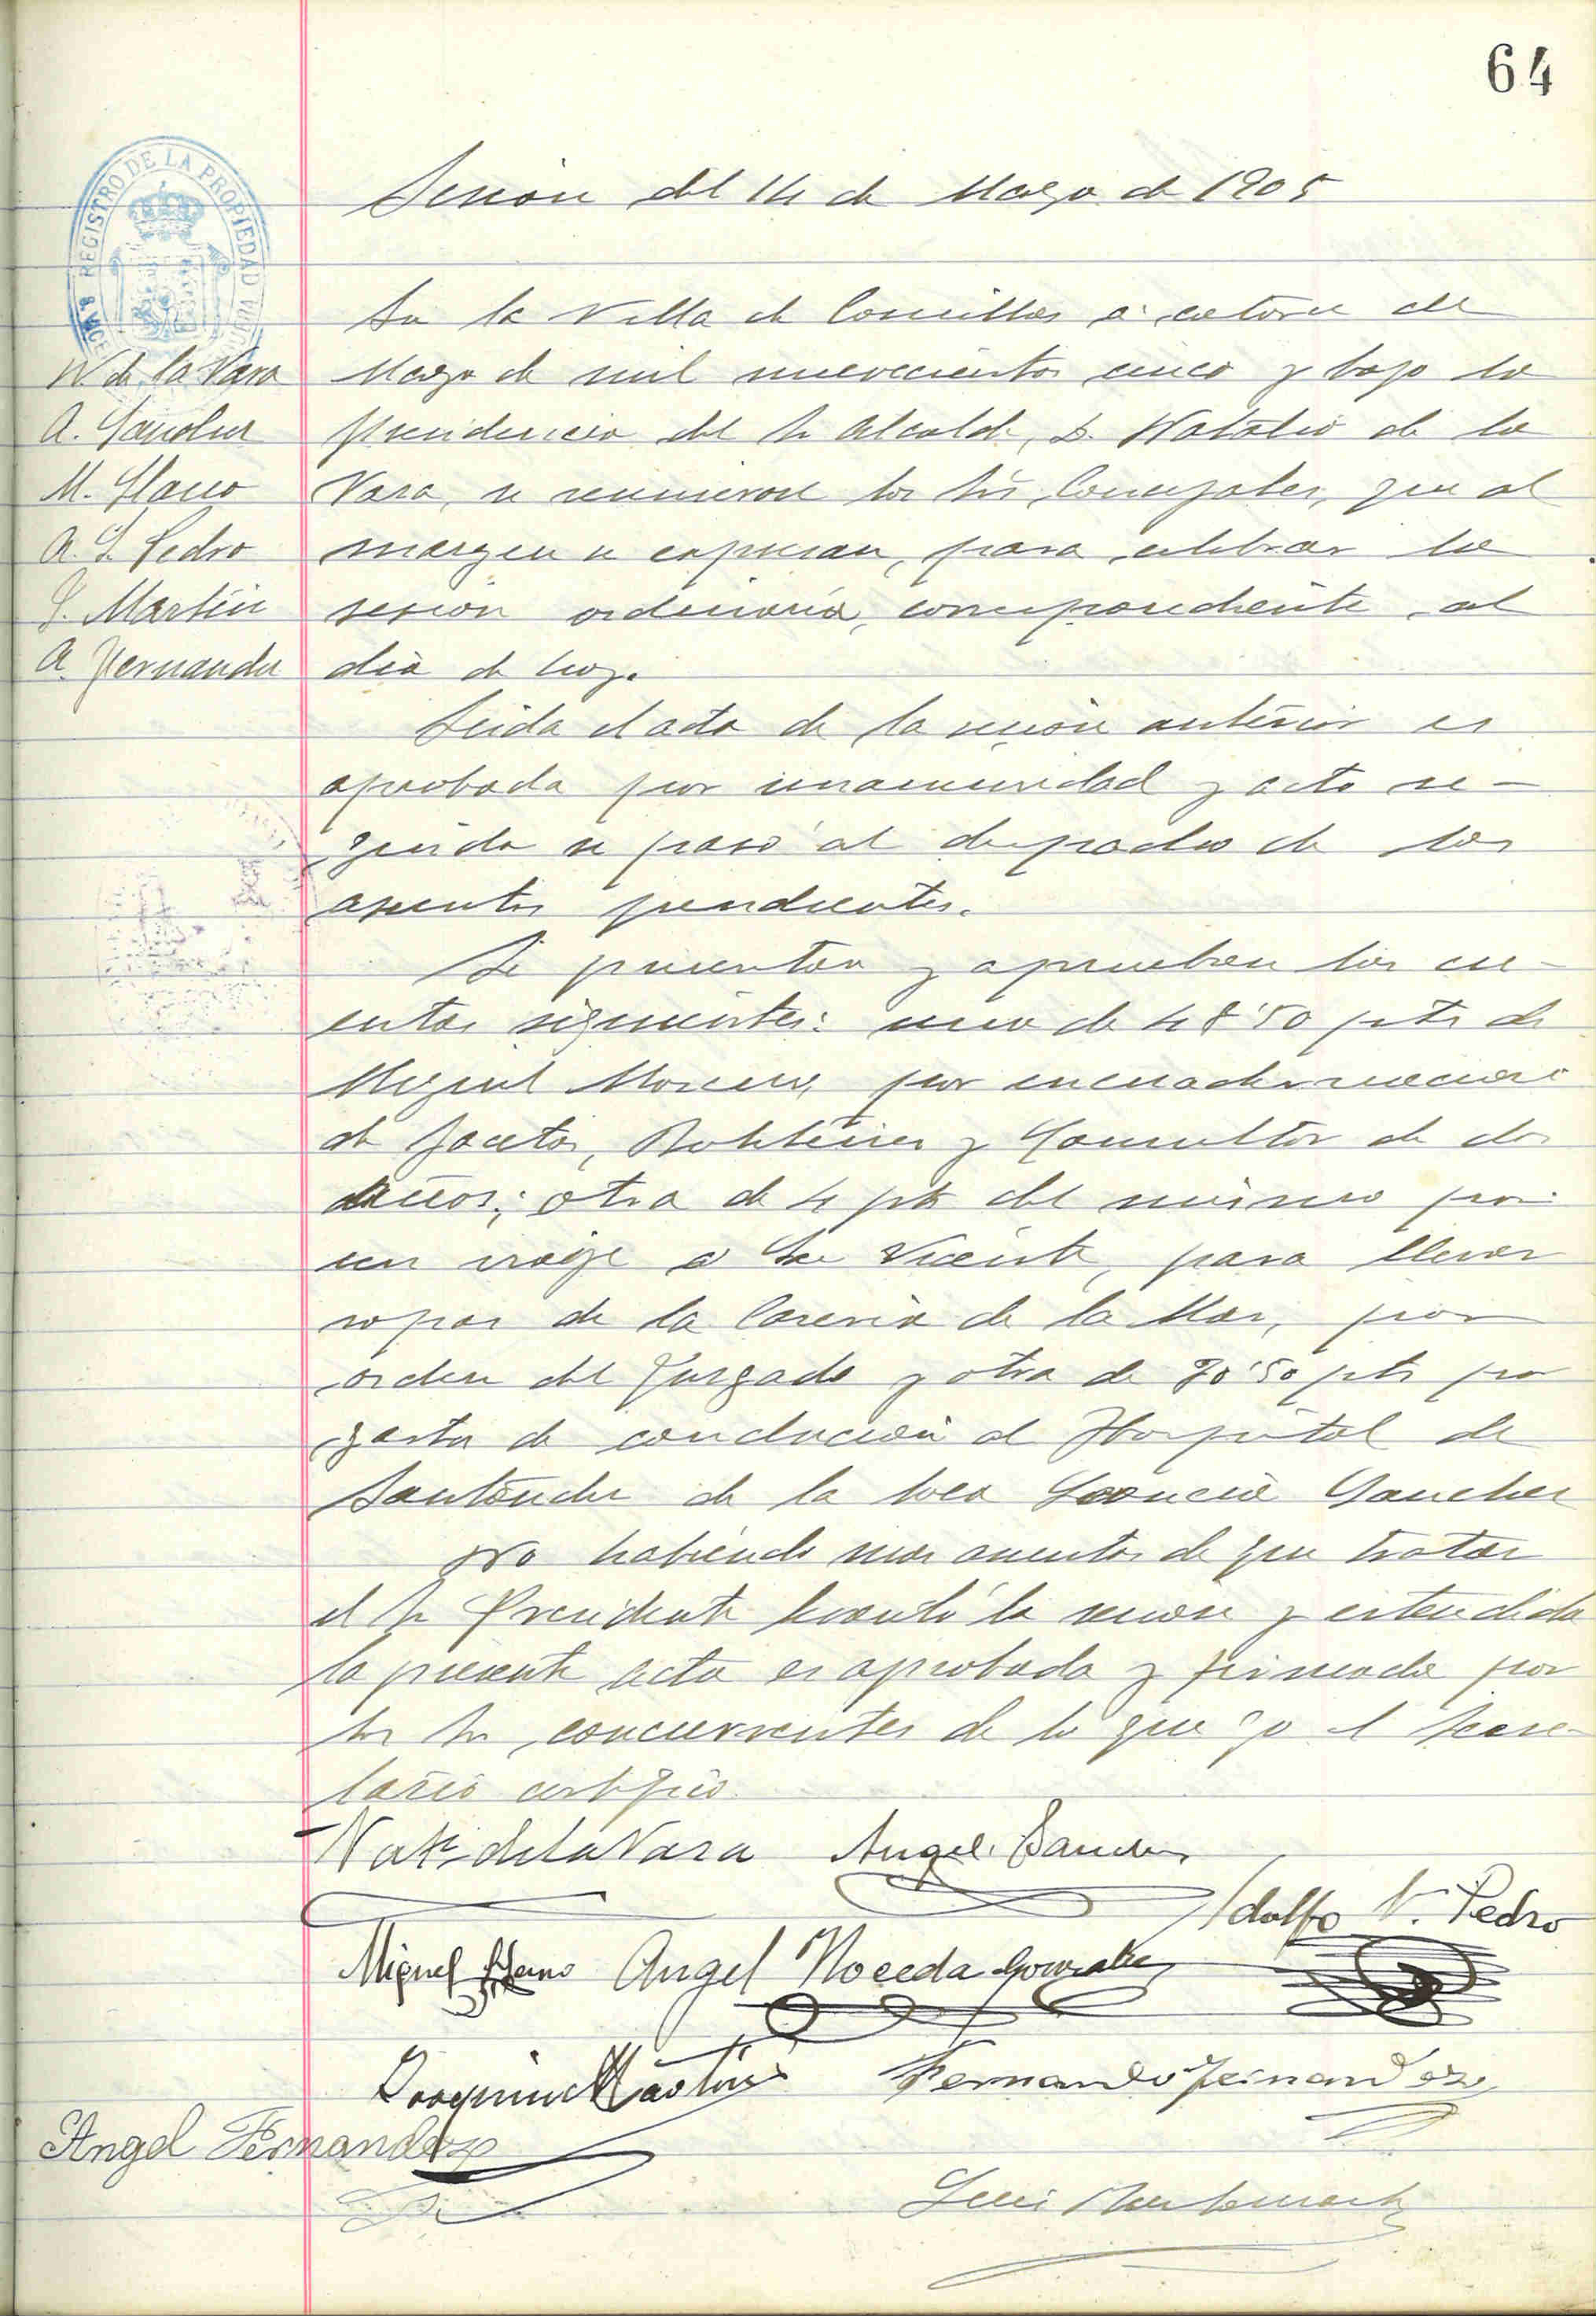 64
REGISTRO DE LA PROPIEDAD
Sesión del 14 de Marzo de 1905
En la Villa de Comillas a catorce de
N. de la Vara
Marzo de mil novecientos cinco y bajo la
A. Sanchez
presidencia del Sr Alcalde, D. Natalio de la
M. Llano
Vara, se reunieron los Srs Concejales, que al
A. S. Pedro
margen se expresan, para celebrar la
J. Martín
sesión ordinaria, correspondiente al
A. Fernandez
día de hoy.
Leida el acta de la sesión anterior es
aprobada por unanimidad y acto se-
guido se pasó al despacho de los
asuntos pendientes.
Se presentan y aprueban las cu-
entas siguientes: una de 48'50 pts de
Miguel por encuadernación
de Gacetas, Boletines y Consultor de dos
años; otra de 4 pts del mismo por
un viaje a San Vicente, para llevar
ropas de la Casería de la Mar, por
orden del Juzgado y otra de 70'50 pts por
gastos de conducción al Hospital de
Santander de la loca Sanchez
No habiendo mas asuntos de que tratar
el Sr Presidente levantó la sesión y estendida
la presente acta es aprobada y firmada por
los Srs concurrentes de lo que yo el Secre-
tario certifico.
Nat. de la Vara Angel Sanchez
Adolfo S. Pedro
Miguel Llano Angel Noceda Gonzalez
Joaquin Martin Fernando Fernandez
Angel Fernandez